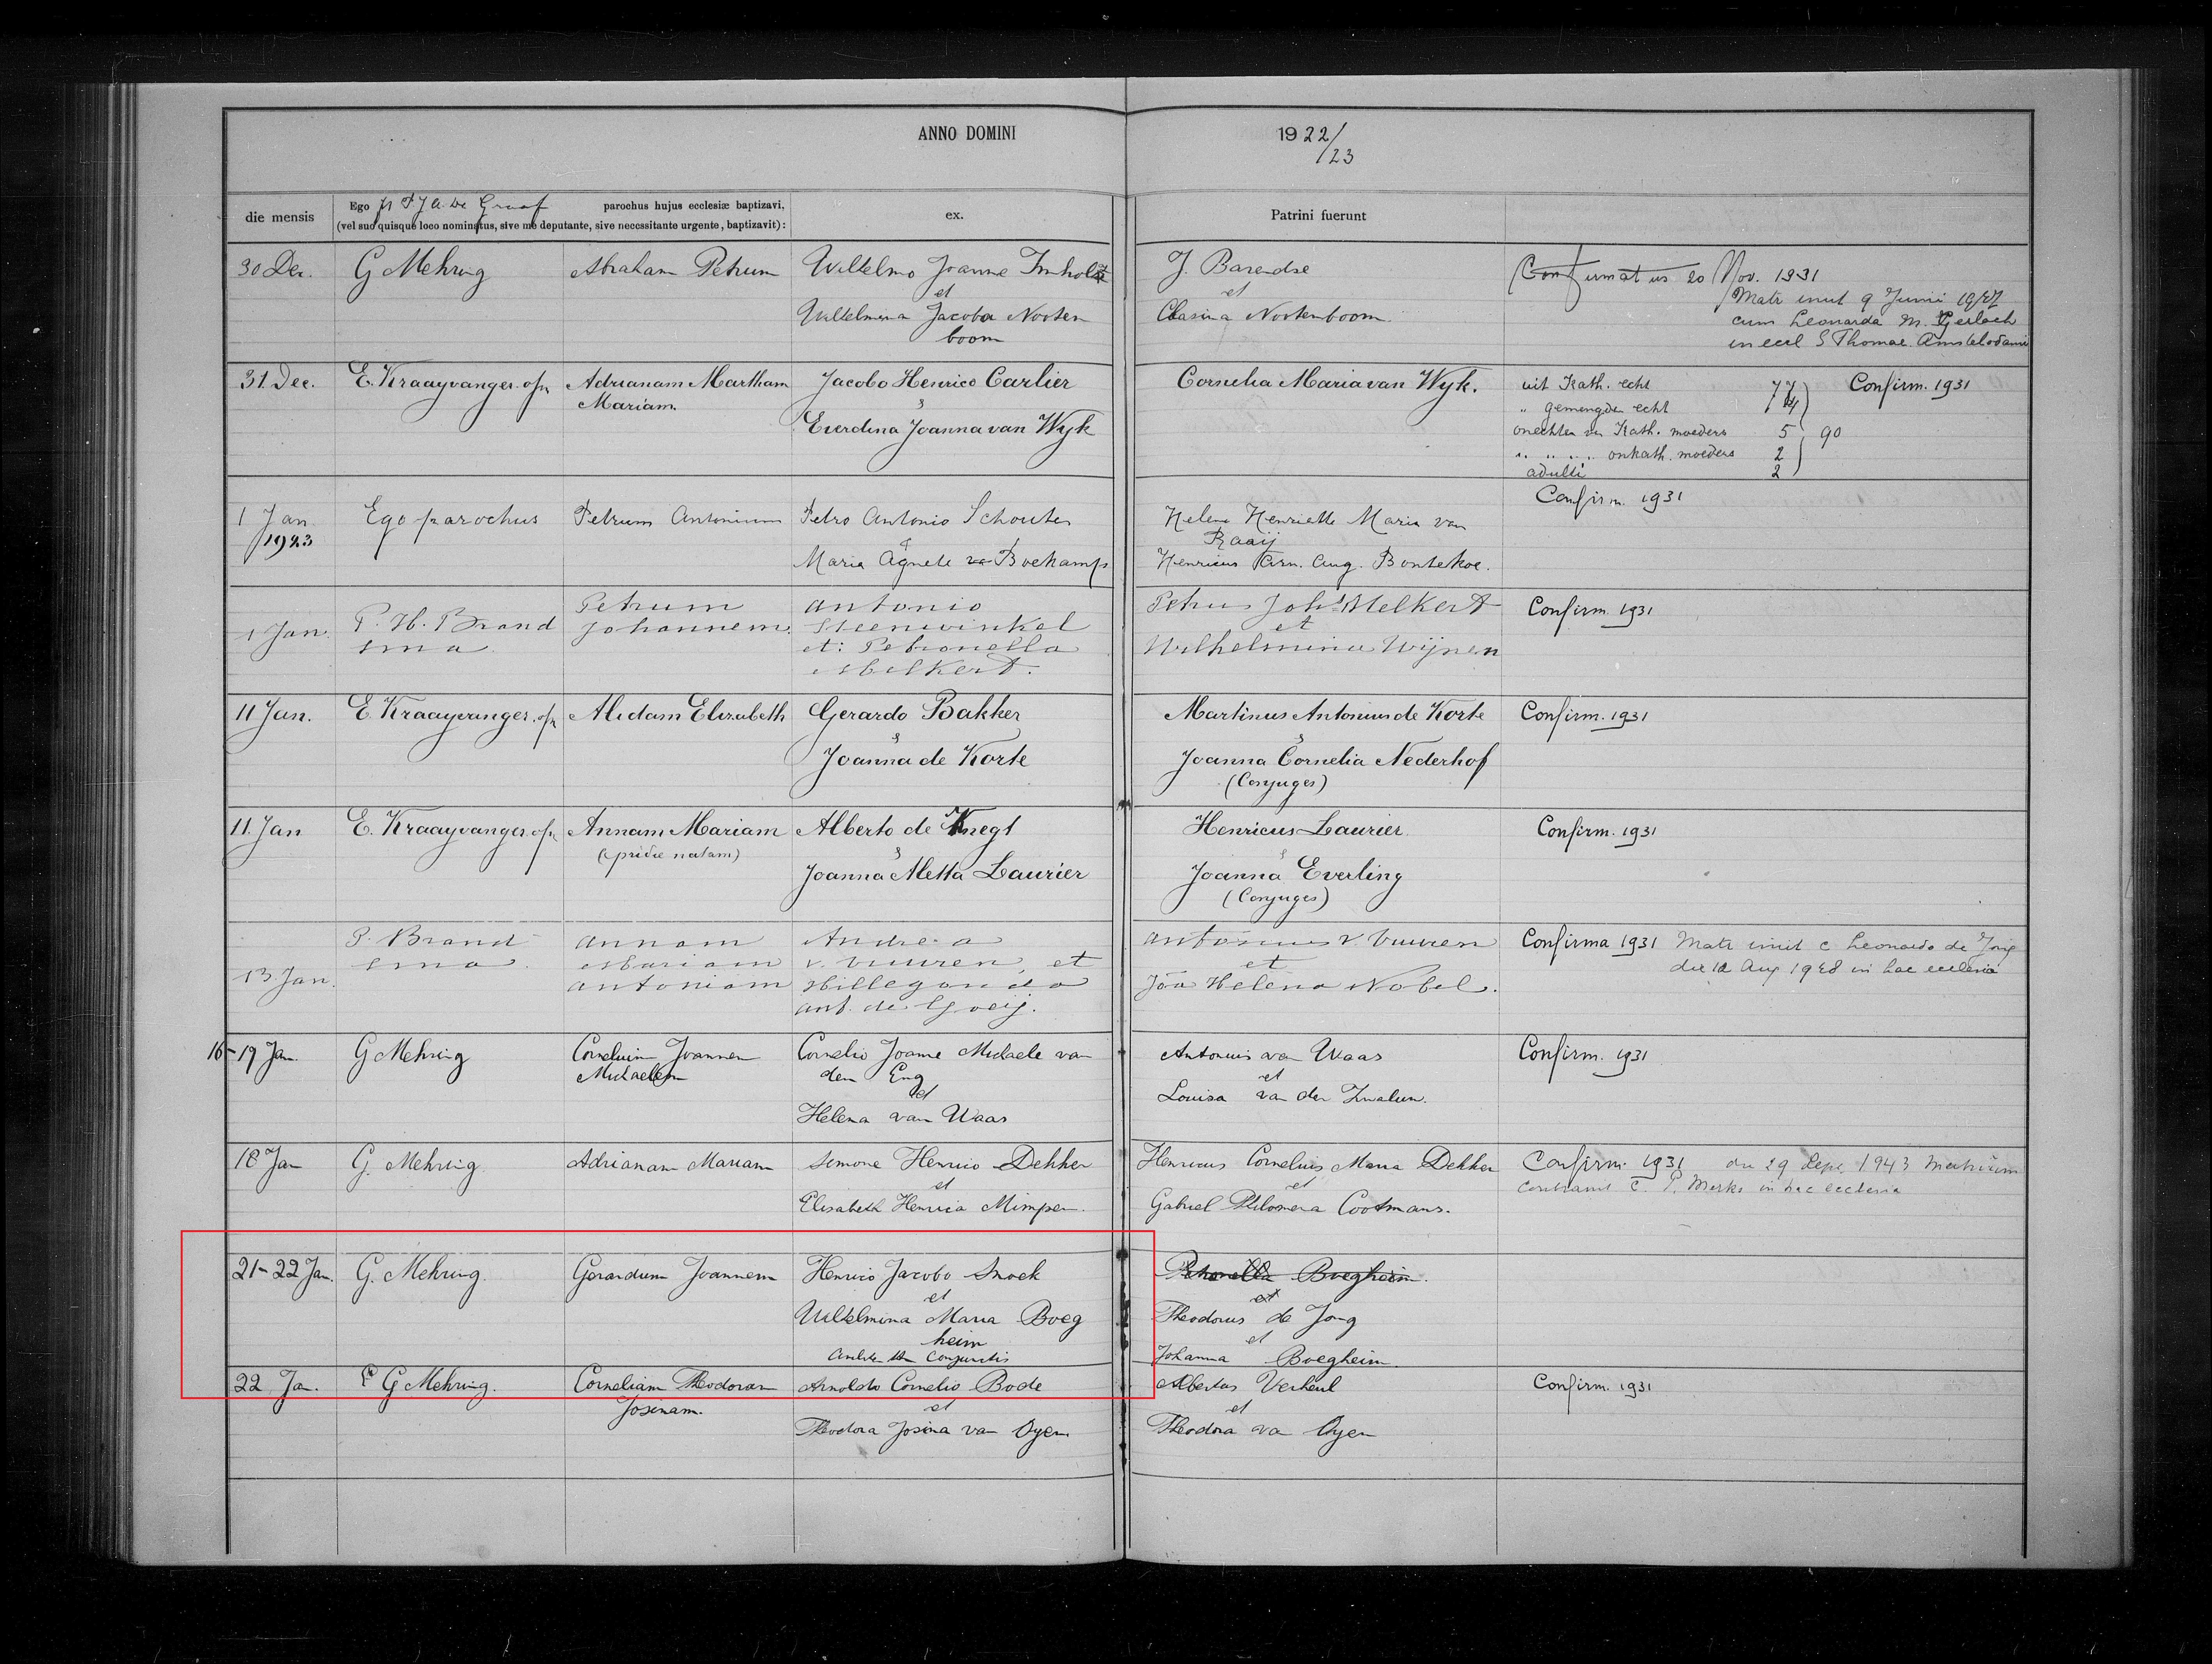 ANNO DOMINI 19 22/23
die mensis
Ego P J A De Graaf parochus hujus ecclesiæ baptizavi,
(vel suo quisque loco nominatus, sive me deputante, sive necessitante urgente, baptizavit):
ex.
Patrini fuerunt
30 Dec. G Mehring Abraham Petrum Wilhelmo Joanne Imholz J. Barendse Confirmatus 20 Nov. 1931
et et Matr iniit 9 Junii 1947
Wilhelmina Jacoba Nooten Clasina Nootenboom cum Leonarda M. Gerlach
boom in eccl S Thomae Amstelodami
31. Dec. E. Kraayvanger. ofr Adrianam Martham Jacobo Henrico Carlier Cornelia Maria van Wyk. uit Kath. echt 77 Confirm. 1931
Mariam. & " gemengden echt 4
Everdina Joanna van Wyk onechten van Kath. moeders 5 90
" " " " onkath. moeders 2
adulti 2
1 Jan Ego parochus Petrum Antonium Petro Antonio Schouten Helena Henriette Maria van Confirm. 1931
1923 & Raaij
Maria Agnete Boekamp Henricus Arn. Aug. Bontekoe.
1 Jan. P. H. Brand Petrum Antonio Petrus Johs Melkert Confirm. 1931
sma Johannem. Steenwinkel et
et: Petronella Wilhelmina Wijnen
Melkert.
11 Jan. E. Kraayvanger. ofr Alidam Elisabeth Gerardo Bakker Martinus Antonius de Korte Confirm. 1931
& &
Joanna de Korte Joanna Cornelia Nederhof
(Conjuges)
11. Jan E. Kraayvanger. ofr Annam Mariam Alberto de Knegt Henricus Laurier Confirm. 1931
(pridie natam) & &
Joanna Aletta Laurier Joanna Everling
(Conjuges)
13 Jan. P. Brand Annam Andrea Antonius v. Vuuren Confirma 1931 Matr iniit c Leonardo de Jong
sma. Mariam v. Vuuren, et et die 12 Aug 1948 in hac ecclesia
Antoniam Hillegonda Joa Helena Nobel.
Ant. de Goeij.
16-19 Jan G Mehring Cornelium Joannem Cornelio Joanne Michaele van Antonius van Waas Confirm. 1931
Michaelem den Eng et
et Louisa van der Zwaluw.
Helena van Waas
18 Jan G. Mehring. Adrianam Mariam Simone Henrico Dekker Henricus Cornelius Maria Dekker Confirm. 1931 die 29 Sept 1943 matrimon
et et contraxit c. P. Merks in hac ecclesia
Elisabeth Henrica Mimpen. Gabriel Philomena Cootmans.
21-22 Jan. G. Mehring. Gerardum Joannem Henrico Jacobo Snoek Petronella Boegheim.
et et
Wilhelmina Maria Boeg Theodorus de Jong
heim et
conjunctis Johanna Boegheim
22 Jan. G Mehring. Corneliam Theodoram Arnoldo Cornelio Bode Albertus Verheul Confirm. 1931
Josinam. et et
Theodora Josina van Oyen Theodora van Oyen